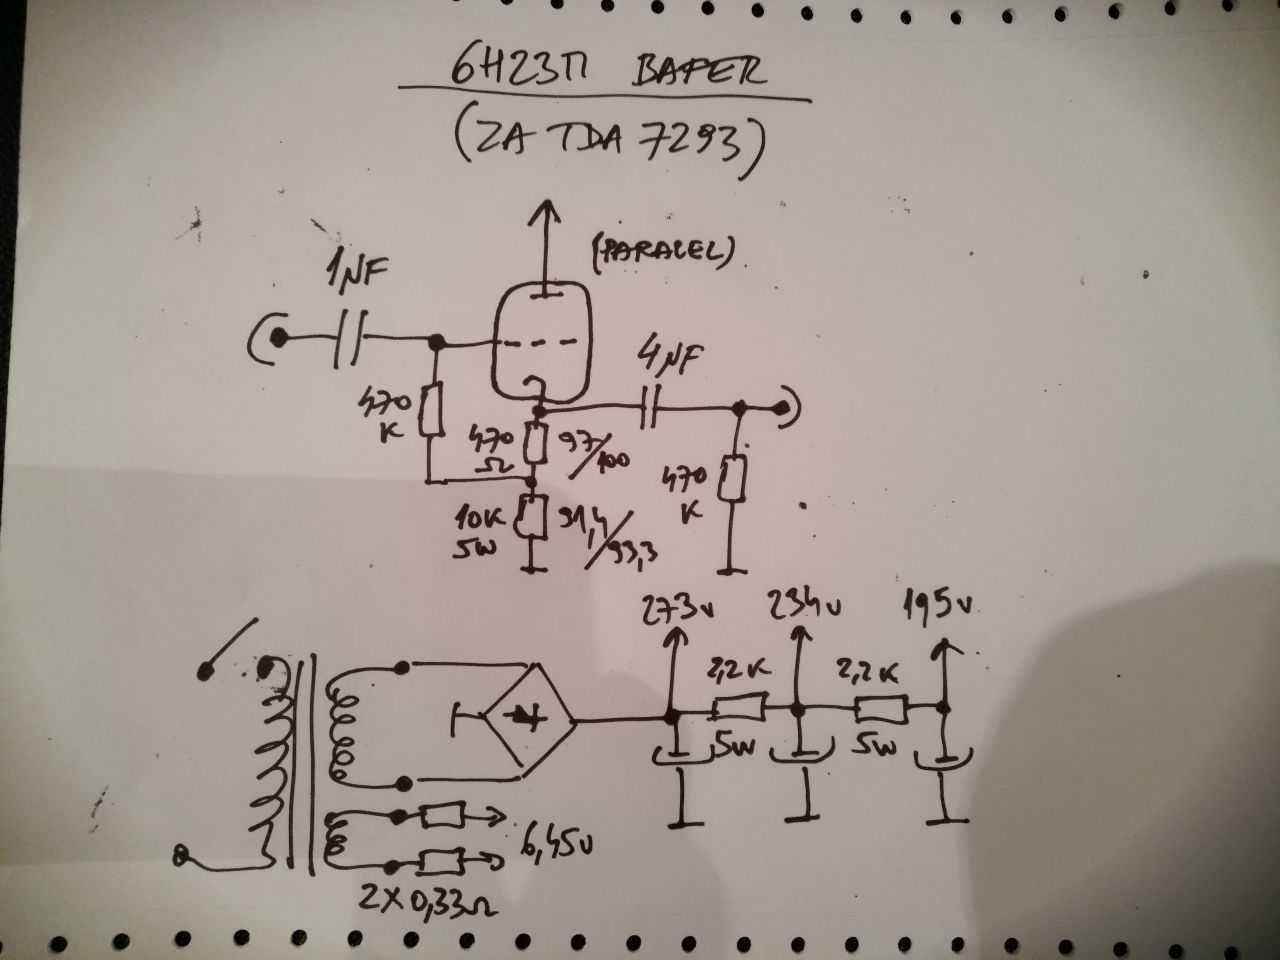 6Н23П BAFER
(ZA TDA 7293)
(PARALEL)
1µF
4µF
470
K
470
Ω
97/100
470
K
10K
5W
91,4/93,3
273v
234v
195v
2,2K
2,2K
5W
5W
6,45v
2X0,33Ω